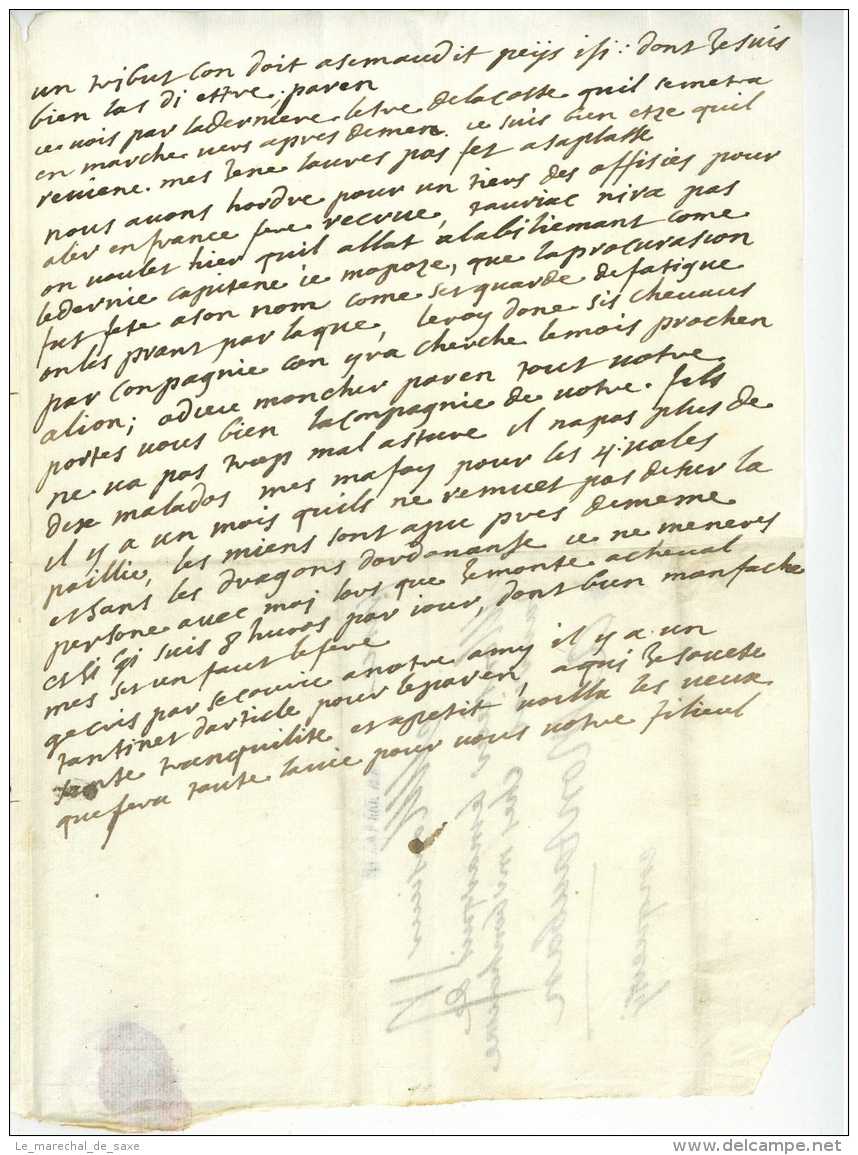 un tribut con doit asemaudit peijs isi: dont Jesuis
bien las di ettre, paren
ie vois par laderniere letre delacoste quil semetra
en marche vers apres demen. ie suis bien etze quil
reviene. mes Jene laures pas fet asaplasse
nous avons hordre pour un tiers des offisies pour
aler enfrance fere recrue, tauriac nira pas
on voulet hier quil allat alabiliemant come
ledernie capitene ie mopoze, que laprocurasion
fut fete ason nom come set guarde defatigue
onles prant par laque, leroy done sis chevaus
par conpagnie con yra cherche lemois prochen
alion; adieu moncher paren tout votre
portes vous bien laconpagnie de votre. fils
ne va pas trop mal asture il napas plus de
dix malades mes mafoy pour les 4: vales
il y a un mois quils ne remuet pas desur la
paillie, les miens sont aque pres dememe
etsans les dragons dordonanse ie ne meneres
persone avec moj lors que Jemonte acheval
et si gi suis 8 hures par iour, dont bien manfache
mes set un faut lefere
gecris par secourie anotre amy il y a un
tantinet darticle pour leparen, aqui Jesouete
sante tranquilite etapetit, voilla les veux
quefera toute lavie pour vous votre filieul
Le_marechal_de_saxe
delcampe.net